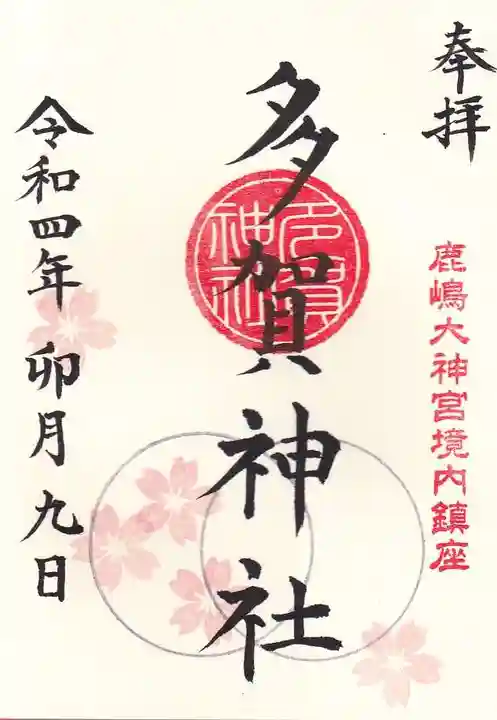 奉拝
鹿嶋大神宮境内鎮座
多賀神社
多賀
神社
令和四年 卯月九日